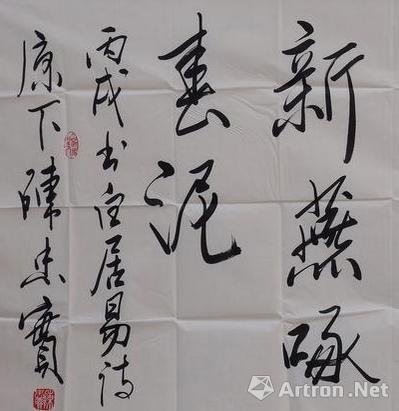 新燕啄
春泥
丙戌书白居易诗
原下陈忠实
Artron.Net